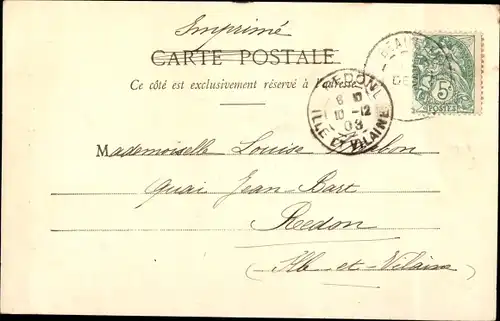 Imprimé
CARTE POSTALE
Ce côté est exclusivement réservé à l'adresse
REDON
8
10 -12
03
ILLE ET VILAINE
5
POSTES
Mademoiselle Louise
Quai Jean-Bart
Redon
(Ille-et-Vilaine)